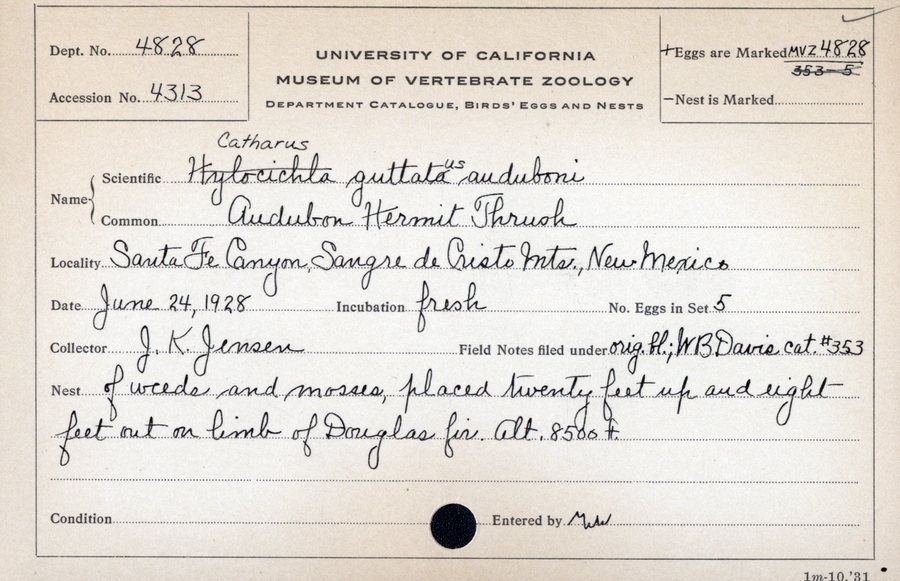 Dept. No. 4828
Accession No. 4313
UNIVERSITY OF CALIFORNIA
MUSEUM OF VERTEBRATE ZOOLOGY
DEPARTMENT CATALOGUE, BIRDS' EGGS AND NESTS
+Eggs are Marked MVZ 4828
353-5
—Nest is Marked
Catharus
Name { Scientific Hylocichla guttata us auduboni
Common Audubon Hermit Thrush
Locality Santa Fe Canyon, Sangre de Cristo Mts., New Mexico
Date June 24, 1928 Incubation fresh No. Eggs in Set 5
Collector J. K. Jensen Field Notes filed under orig. bl.; WB Davis cat. #353
Nest of weeds and mosses, placed twenty feet up and eight
feet out on limb of Douglas fir. Alt. 8500 ft.
Condition Entered by
1m-10,'31